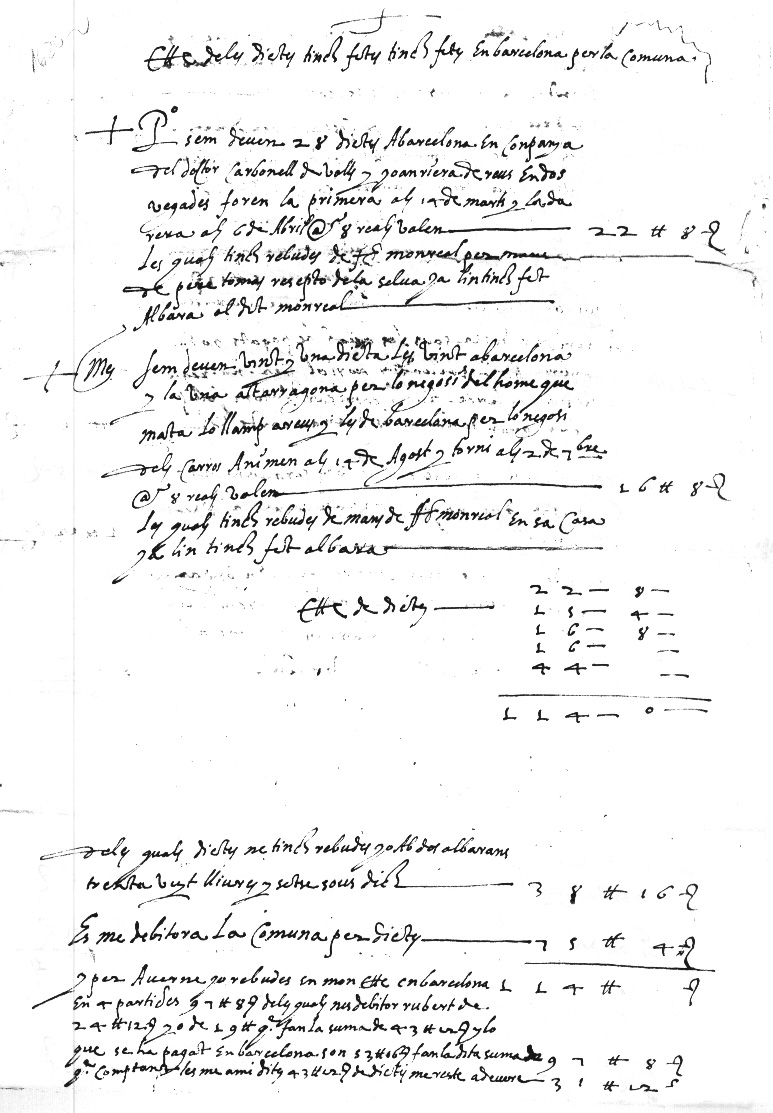 dels dietes tinch fetes tinch fets En barcelona per la Comuna.
+ Po sem deven 28 dietes A barcelona En Conpanya
del doctor Carbonell de Valls y Joan riera de reus En dos
vegades foren la primera als 14 de mars y la da
rera als 6 de Abril @ 8 reals valen 22 # 8
Les quals tinch rebudes de monreal per mans
de pere tomas resepto de la selva ya lin tinch fet
Albara al dit monreal
+ Mes sem deven vint y una dieta Les vint a barcelona
y la una a tarragona per lo negosi del home que
mata lo llamp a reus y les de barcelona per lo negosi
dels Carros Animen als 14 de Agost y torni als 2 de 7bre
@ 8 reals valen 16 # 8
Les quals tinch rebudes de mans de monreal En sa Casa
ya lin tinch fet albara
de dietes
22 — 8 —
15 — 4 —
16 — 8 —
16 — —
44 — —
114 — 0 —
dels quals dietes ne tinch rebudes yo Ab dos albarans
trenta vuyt lliures y setse sous dich 38 # 16
Es me debitora La Comuna per dietes 75 # 4
y per Averne yo rebudes En mon en barcelona 114 #
En 4 partides 97 # 8 dels quals nes debitor rubert de
24 # 12 y o de 19 # fan la suma de 43 # 12 y lo
que se ha pagat En barcelona son 53 # 16 fan la dita suma de 97 # 8
Comptant les me a mi dites 43 # 12 de dietes me reste a deure 31 # 12